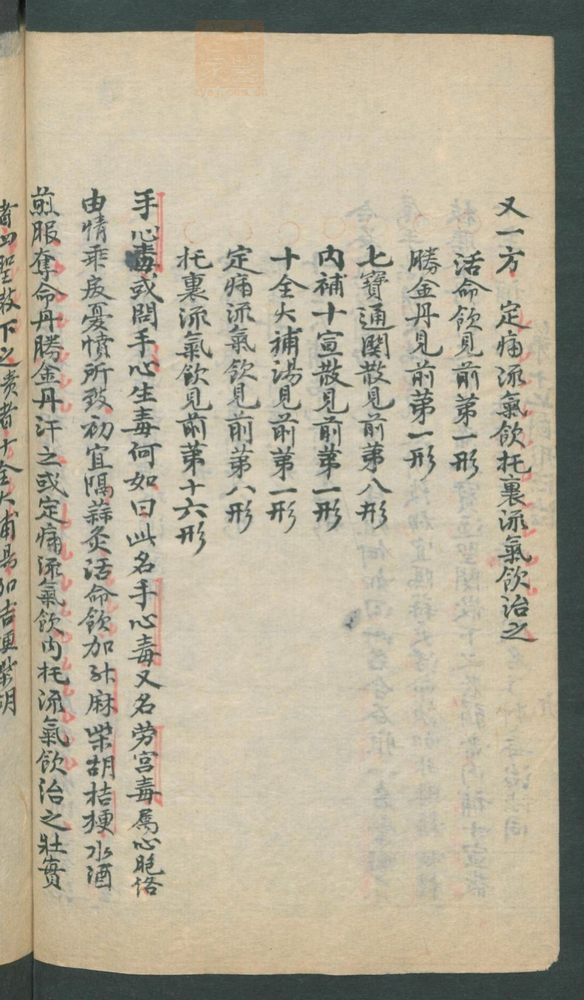 又一方　定痛流氣飲托裏流氣飲治之
活命飲見前第一形
勝金丹見前第一形
七寶通関散見前第八形
内補十宣散見前第一形
十全大補湯見前第一形
定痛流氣飲見前第八形
托裏流氣飲見前第十六形
手心毒或問手心生毒何如曰此名手心毒又名劳宮毒属心胞络
由情乖戾憂憤所致初宜隔蒜灸活命飲加升麻柴胡桔梗水酒
煎服奪命丹勝金丹汗之或定痛流氣飲内托流氣飲治之壯實
者四聖散下之虚者十全大補湯加桔梗柴胡